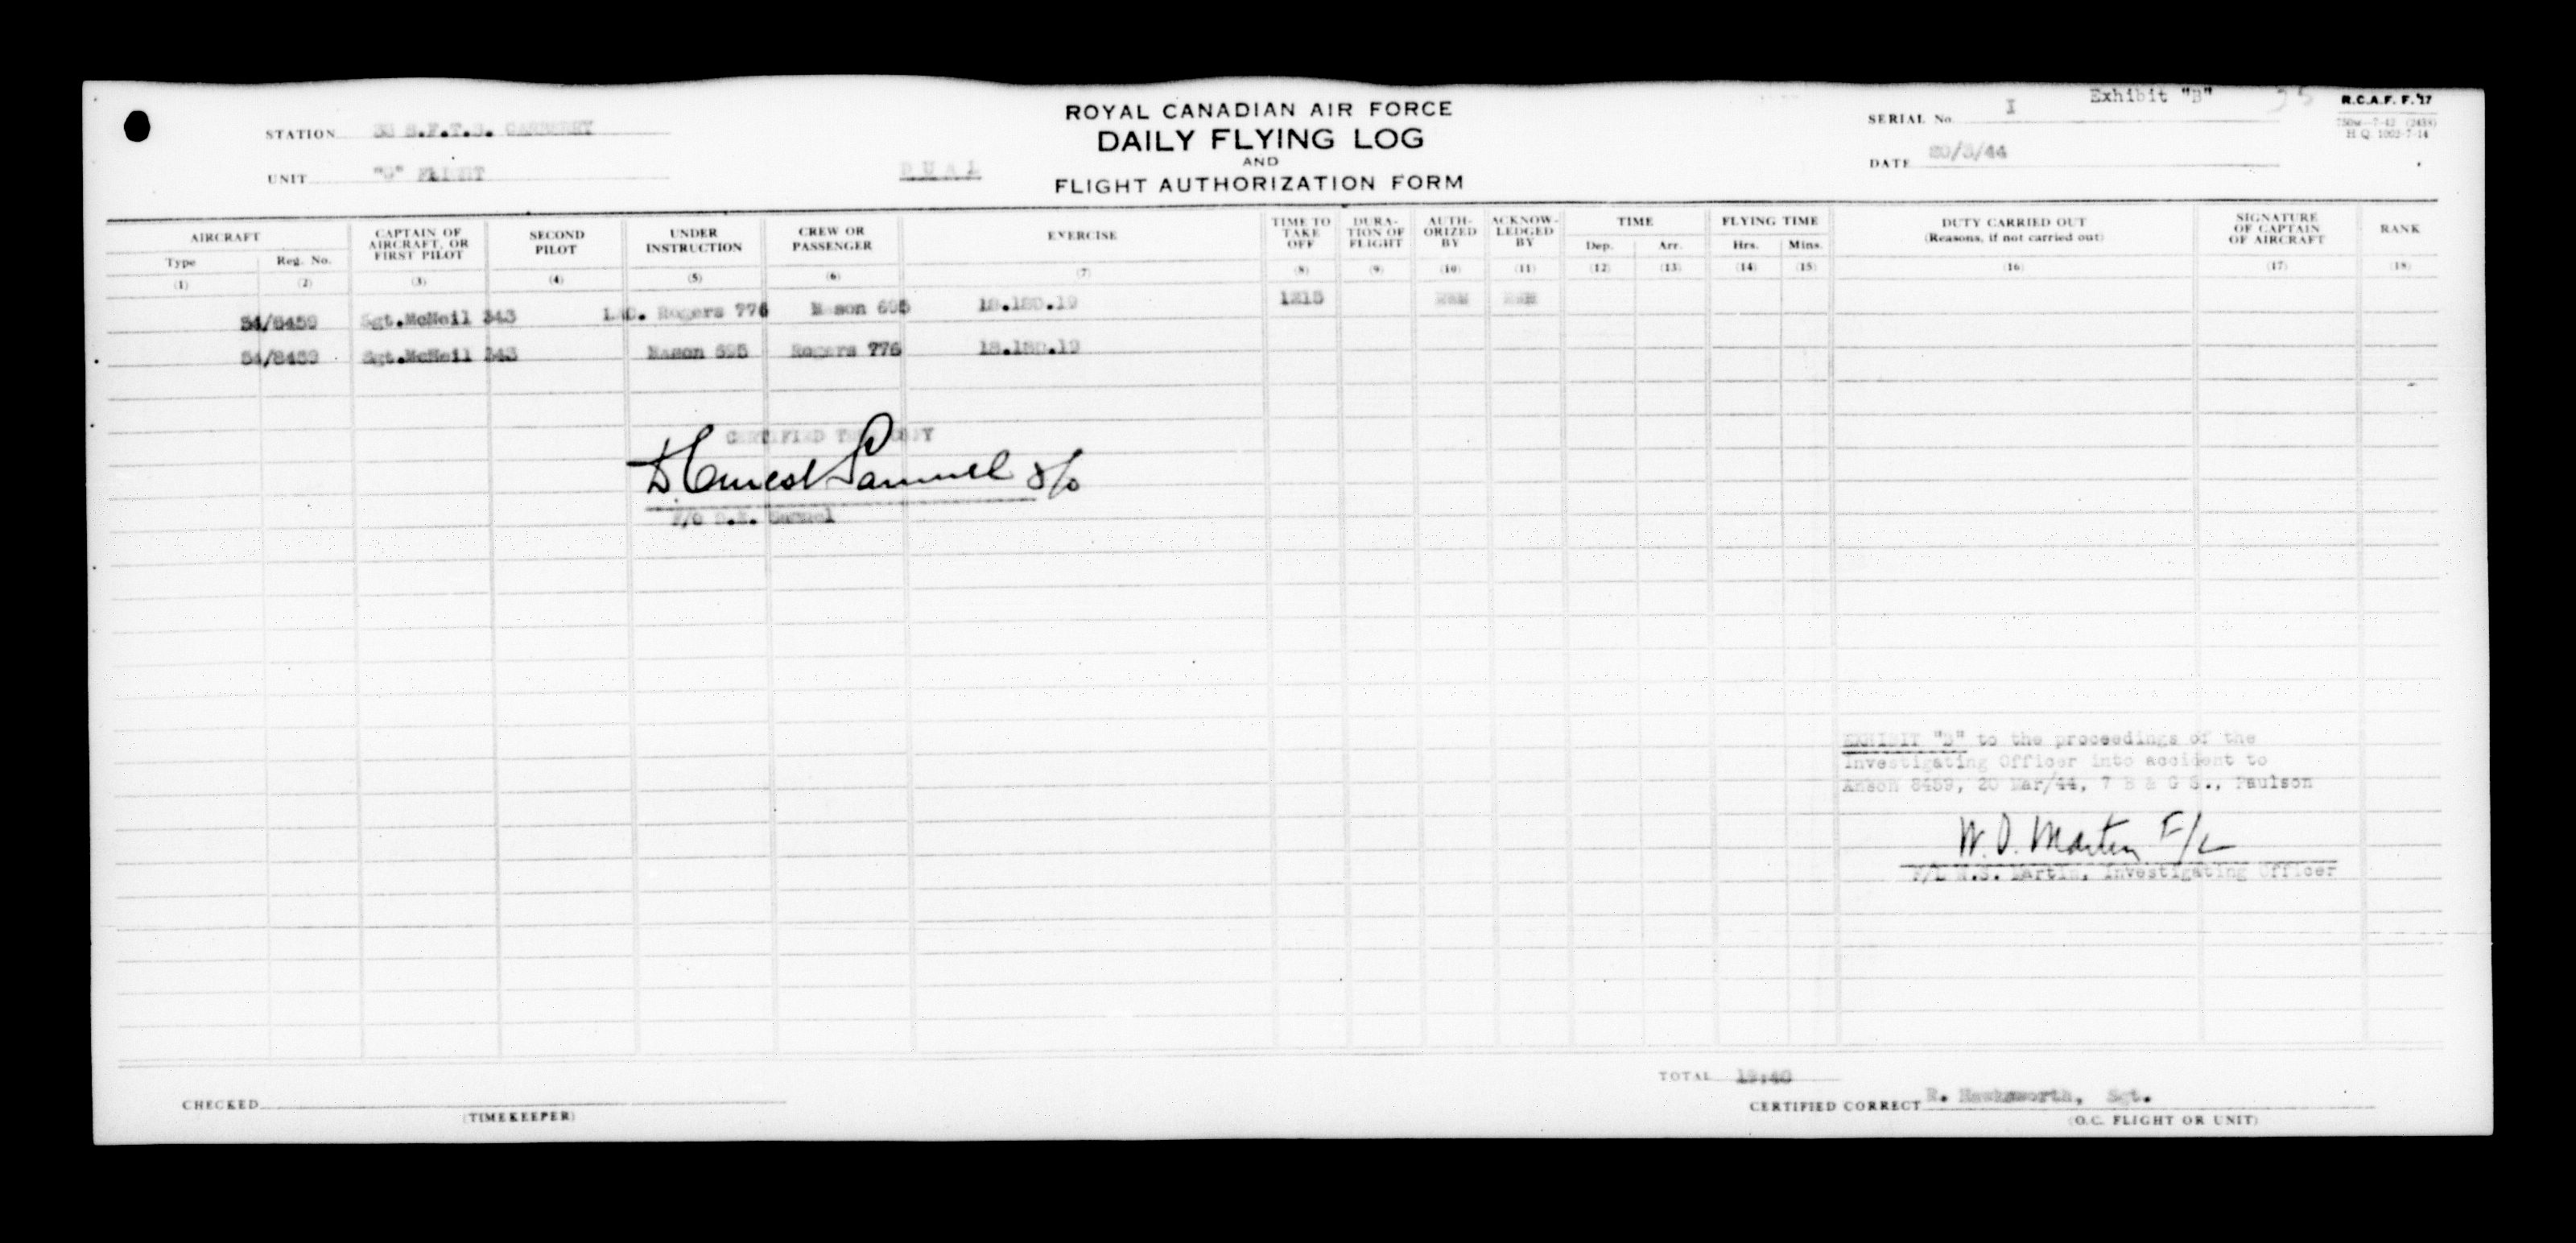 Exhibit "B"
ROYAL CANADIAN AIR FORCE
DAILY FLYING LOG
AND
FLIGHT AUTHORIZATION FORM
STATION 33 S.F.T.S. CARBERRY
UNIT FLIGHT
DUAL
SERIAL No. I
DATE 20/3/44
R.C.A.F. F. 17
H Q 1062-7-14
AIRCRAFT
Type
Reg. No.
(1) (2)
CAPTAIN OF
AIRCRAFT, OR
FIRST PILOT
(3)
SECOND
PILOT
(4)
UNDER
INSTRUCTION
(5)
CREW OR
PASSENGER
(6)
EXERCISE
(7)
TIME TO
TAKE
OFF
(8)
DURA-
TION OF
FLIGHT
(9)
AUTH-
ORIZED
BY
(10)
ACKNOW-
LEDGED
BY
(11)
TIME
Dep. Arr.
(12) (13)
FLYING TIME
Hrs. Mins.
(14) (15)
DUTY CARRIED OUT
(Reasons, if not carried out)
(16)
SIGNATURE
OF CAPTAIN
OF AIRCRAFT
(17)
RANK
(18)
54/8459 Sgt.McNeil 343 Rogers 776 Mason 695 1215
54/8459 Sgt.McNeil 343 Mason 695 Rogers 776
CERTIFIED TRUE COPY
D Ernest Samuel F/O
F/O D.E. Samuel
EXHIBIT "B" to the proceedings of the
Investigating Officer into accident to
Anson 8459, 20 Mar/44, 7 B & G S., Paulson
W. D. Martin F/L
Martin, Investigating Officer
TOTAL 19:40
CHECKED
(TIMEKEEPER)
CERTIFIED CORRECT R. Hawksworth, Sgt.
(O.C. FLIGHT OR UNIT)